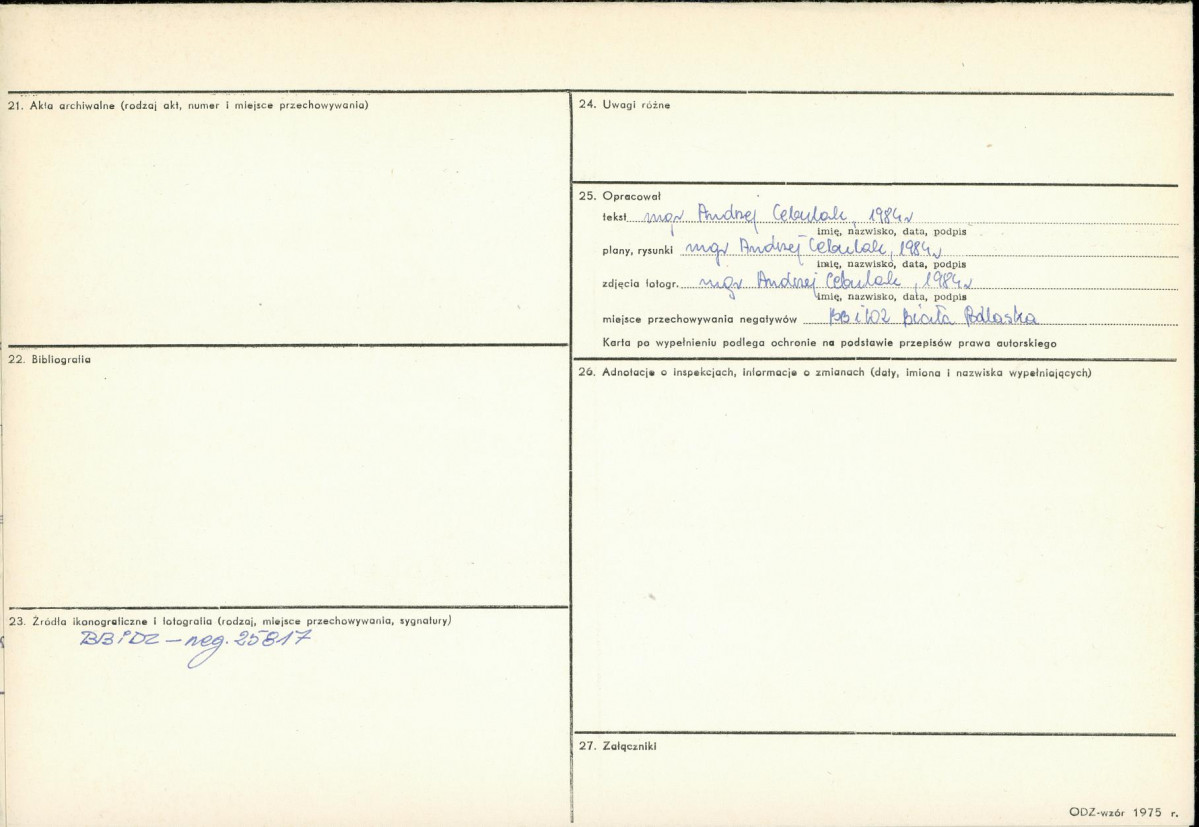 21. Akta archiwalne (rodzaj akt, numer i miejsce przechowywania)
22. Bibliografia
23. Źródła ikonograficzne i fotografia (rodzaj, miejsce przechowywania, sygnatury)
BBiDZ – neg. 25817
24. Uwagi różne
25. Opracował
tekst mgr Andrzej Cebulak, 1984r
imię, nazwisko, data, podpis
plany, rysunki mgr Andrzej Cebulak, 1984r
imię, nazwisko, data, podpis
zdjęcia fotogr. mgr Andrzej Cebulak, 1984r
imię, nazwisko, data, podpis
miejsce przechowywania negatywów BBiDZ Biała Podlaska
Karta po wypełnieniu podlega ochronie na podstawie przepisów prawa autorskiego
26. Adnotacje o inspekcjach, informacje o zmianach (daty, imiona i nazwiska wypełniających)
27. Załączniki
ODZ-wzór 1975 r.